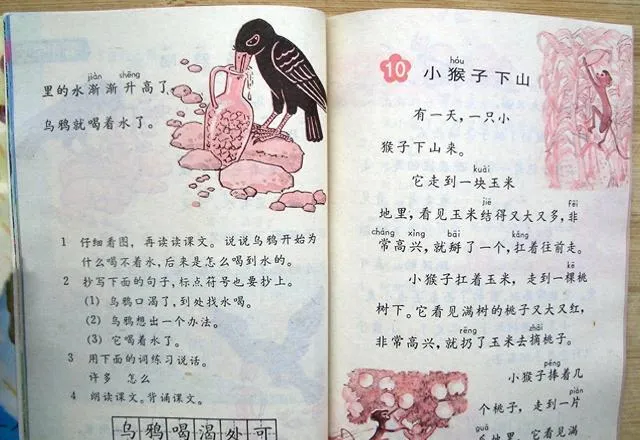 jiàn shēng
里的水渐渐升高了,
乌鸦就喝着水了。
1 仔细看图,再读读课文。说说乌鸦开始为
什么喝不着水,后来是怎么喝到水的。
2 抄写下面的句子,标点符号也要抄上。
(1) 乌鸦口渴了,到处找水喝。
(2) 乌鸦想出一个办法。
(3) 它喝着水了。
3 用下面的词练习说话。
许多 怎么
4 朗读课文。背诵课文。
乌鸦喝渴处可
hóu
10 小猴子下山
有一天,一只小
猴子下山来。
kuài
它走到一块玉米
jiē fēi
地里,看见玉米结得又大又多,非
cháng xìng bāi káng
常高兴,就掰了一个,扛着往前走。
kē
小猴子扛着玉米,走到一棵桃
树下。它看见满树的桃子又大又红,
rēng zhāi
非常高兴,就扔了玉米去摘桃子。
pěng
小猴子捧着几
个桃子,走到一片
guā
地里。它看